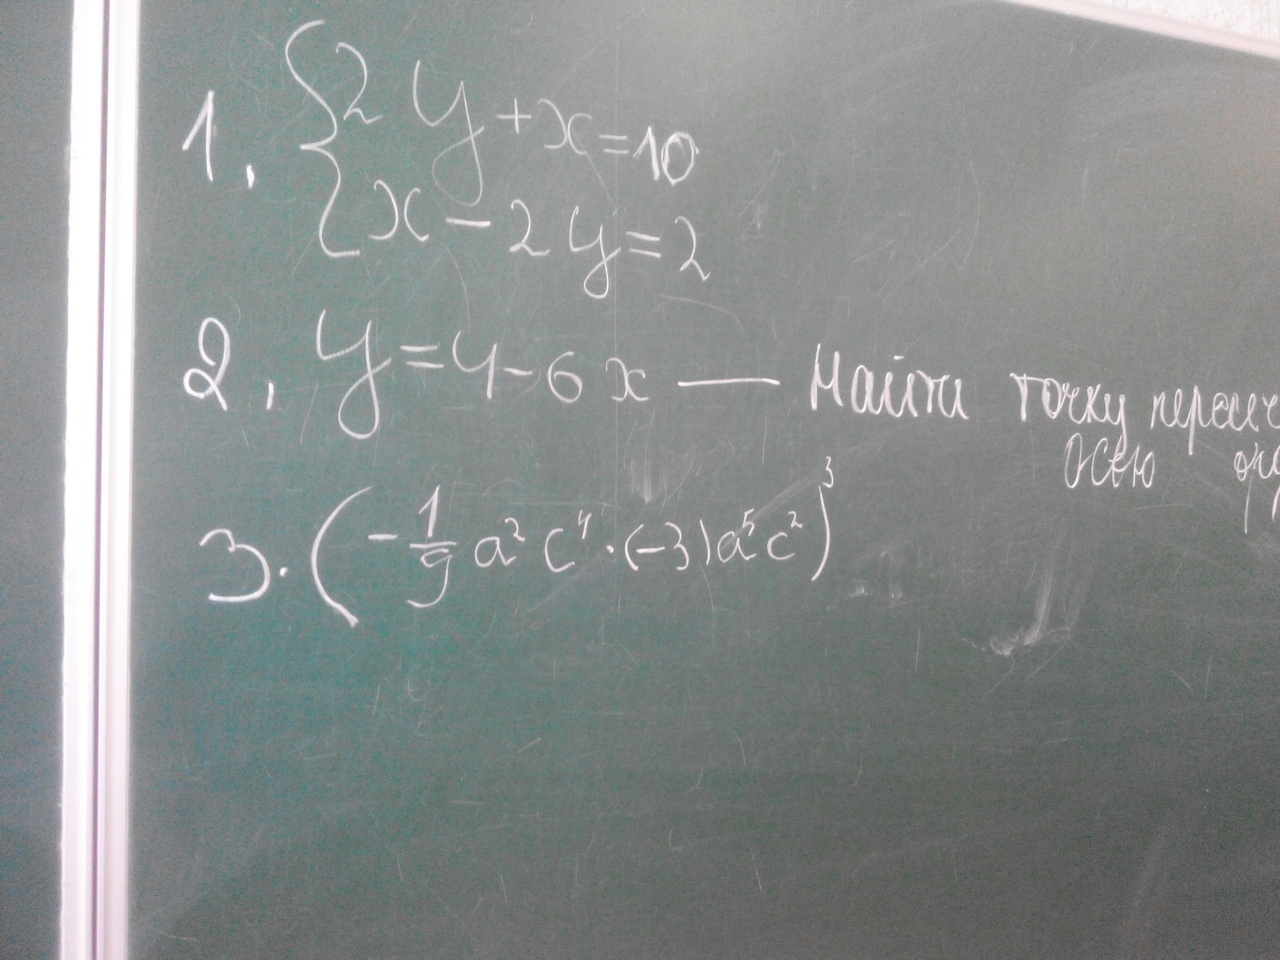 1. { 2y + x = 10
x - 2y = 2
2. y = 4 - 6x — Найти точку пересеч
осью
3. (- 1/9 a² c⁴ · (-3) a⁵ c²)³